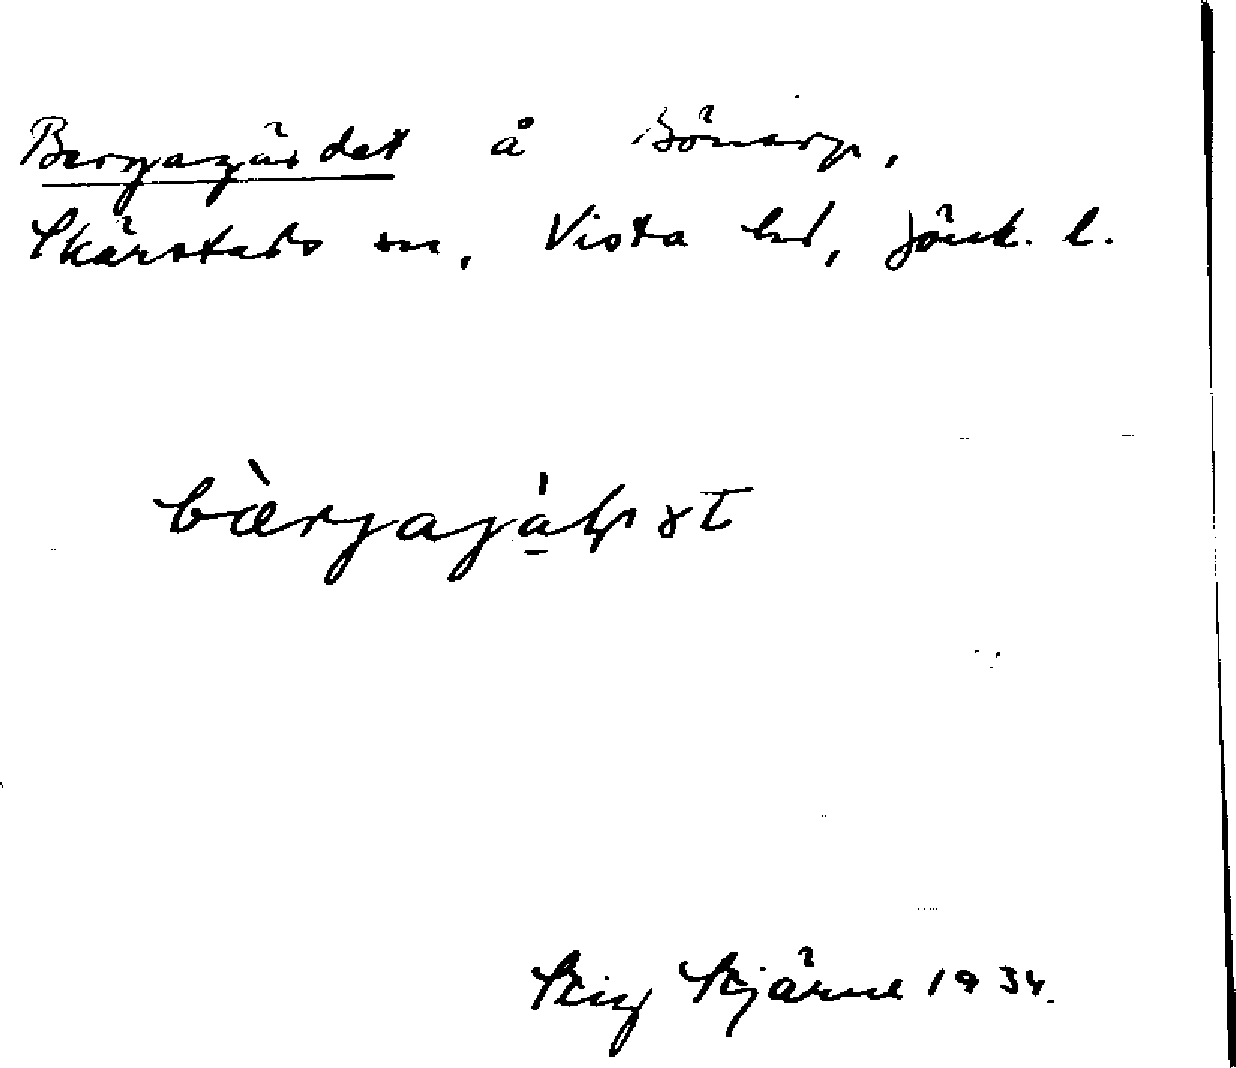 Bergagärdet å Bönarp,
Skärstads sn, Vista hd, Jönk. l.
bærjajálɐt
Stig Stjärne 1934.